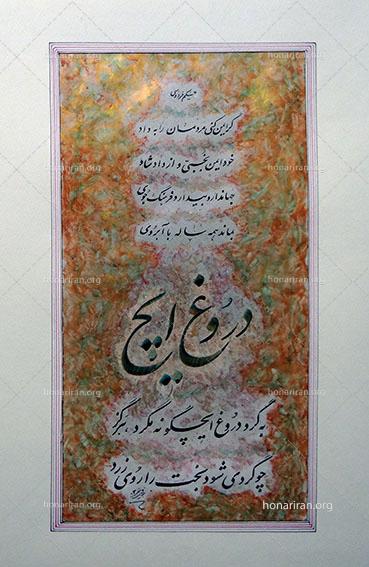 honariran.org
حکیم فردوسی
گر ایمن کنی مردمان را به داد
خود ایمن بخسبی و از داد شاد
جهاندار و بیدار و فرهنگ جوی
بماند همه ساله با آبروی
دروغ ایچ
به گرد دروغ ایچگونه مگرد، هرگز
چو گردی شود بخت را روی زرد
honariran.org